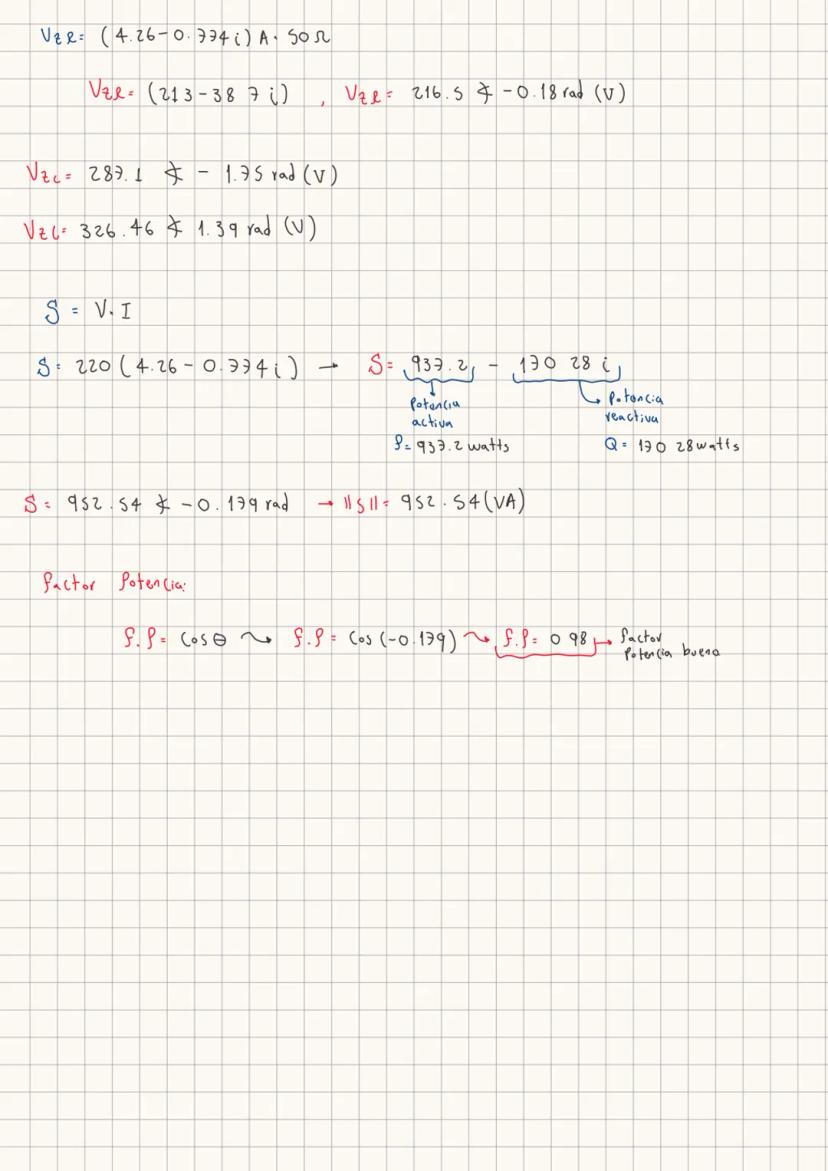 VzR= (4.26-0.774i) A. 50Ω
VzR= (213-38 7 i) , VzR= 216.5 ∡ -0.18 rad (V)
Vzc= 287.1 ∡ - 1.75 rad (V)
VzL= 326.46 ∡ 1.39 rad (V)
S = V.I
S= 220 (4.26-0.774i) → S= 937.2 - 170 28 i
Potencia activa
Potencia reactiva
P= 937.2 watts
Q= 170 28 watts
S= 952.54 ∡ -0.179 rad → ||S||= 952.54 (VA)
factor Potencia:
f.P= cos θ ⤳ f.P= cos (-0.179) ⤳ f.P= 0 98 → factor Potencia bueno